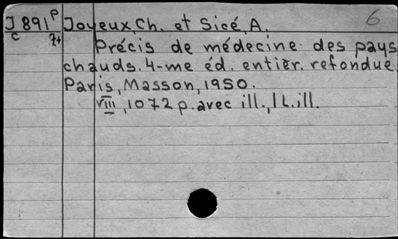 J891P Joyeux, Ch. et Sicé, A. 6
C 7+
Précis de médecine des pays
chauds. 4-me éd. entièr. refondue.
Paris, Masson, 1950.
VIII, 1072 p. avec ill., 1 L. ill.